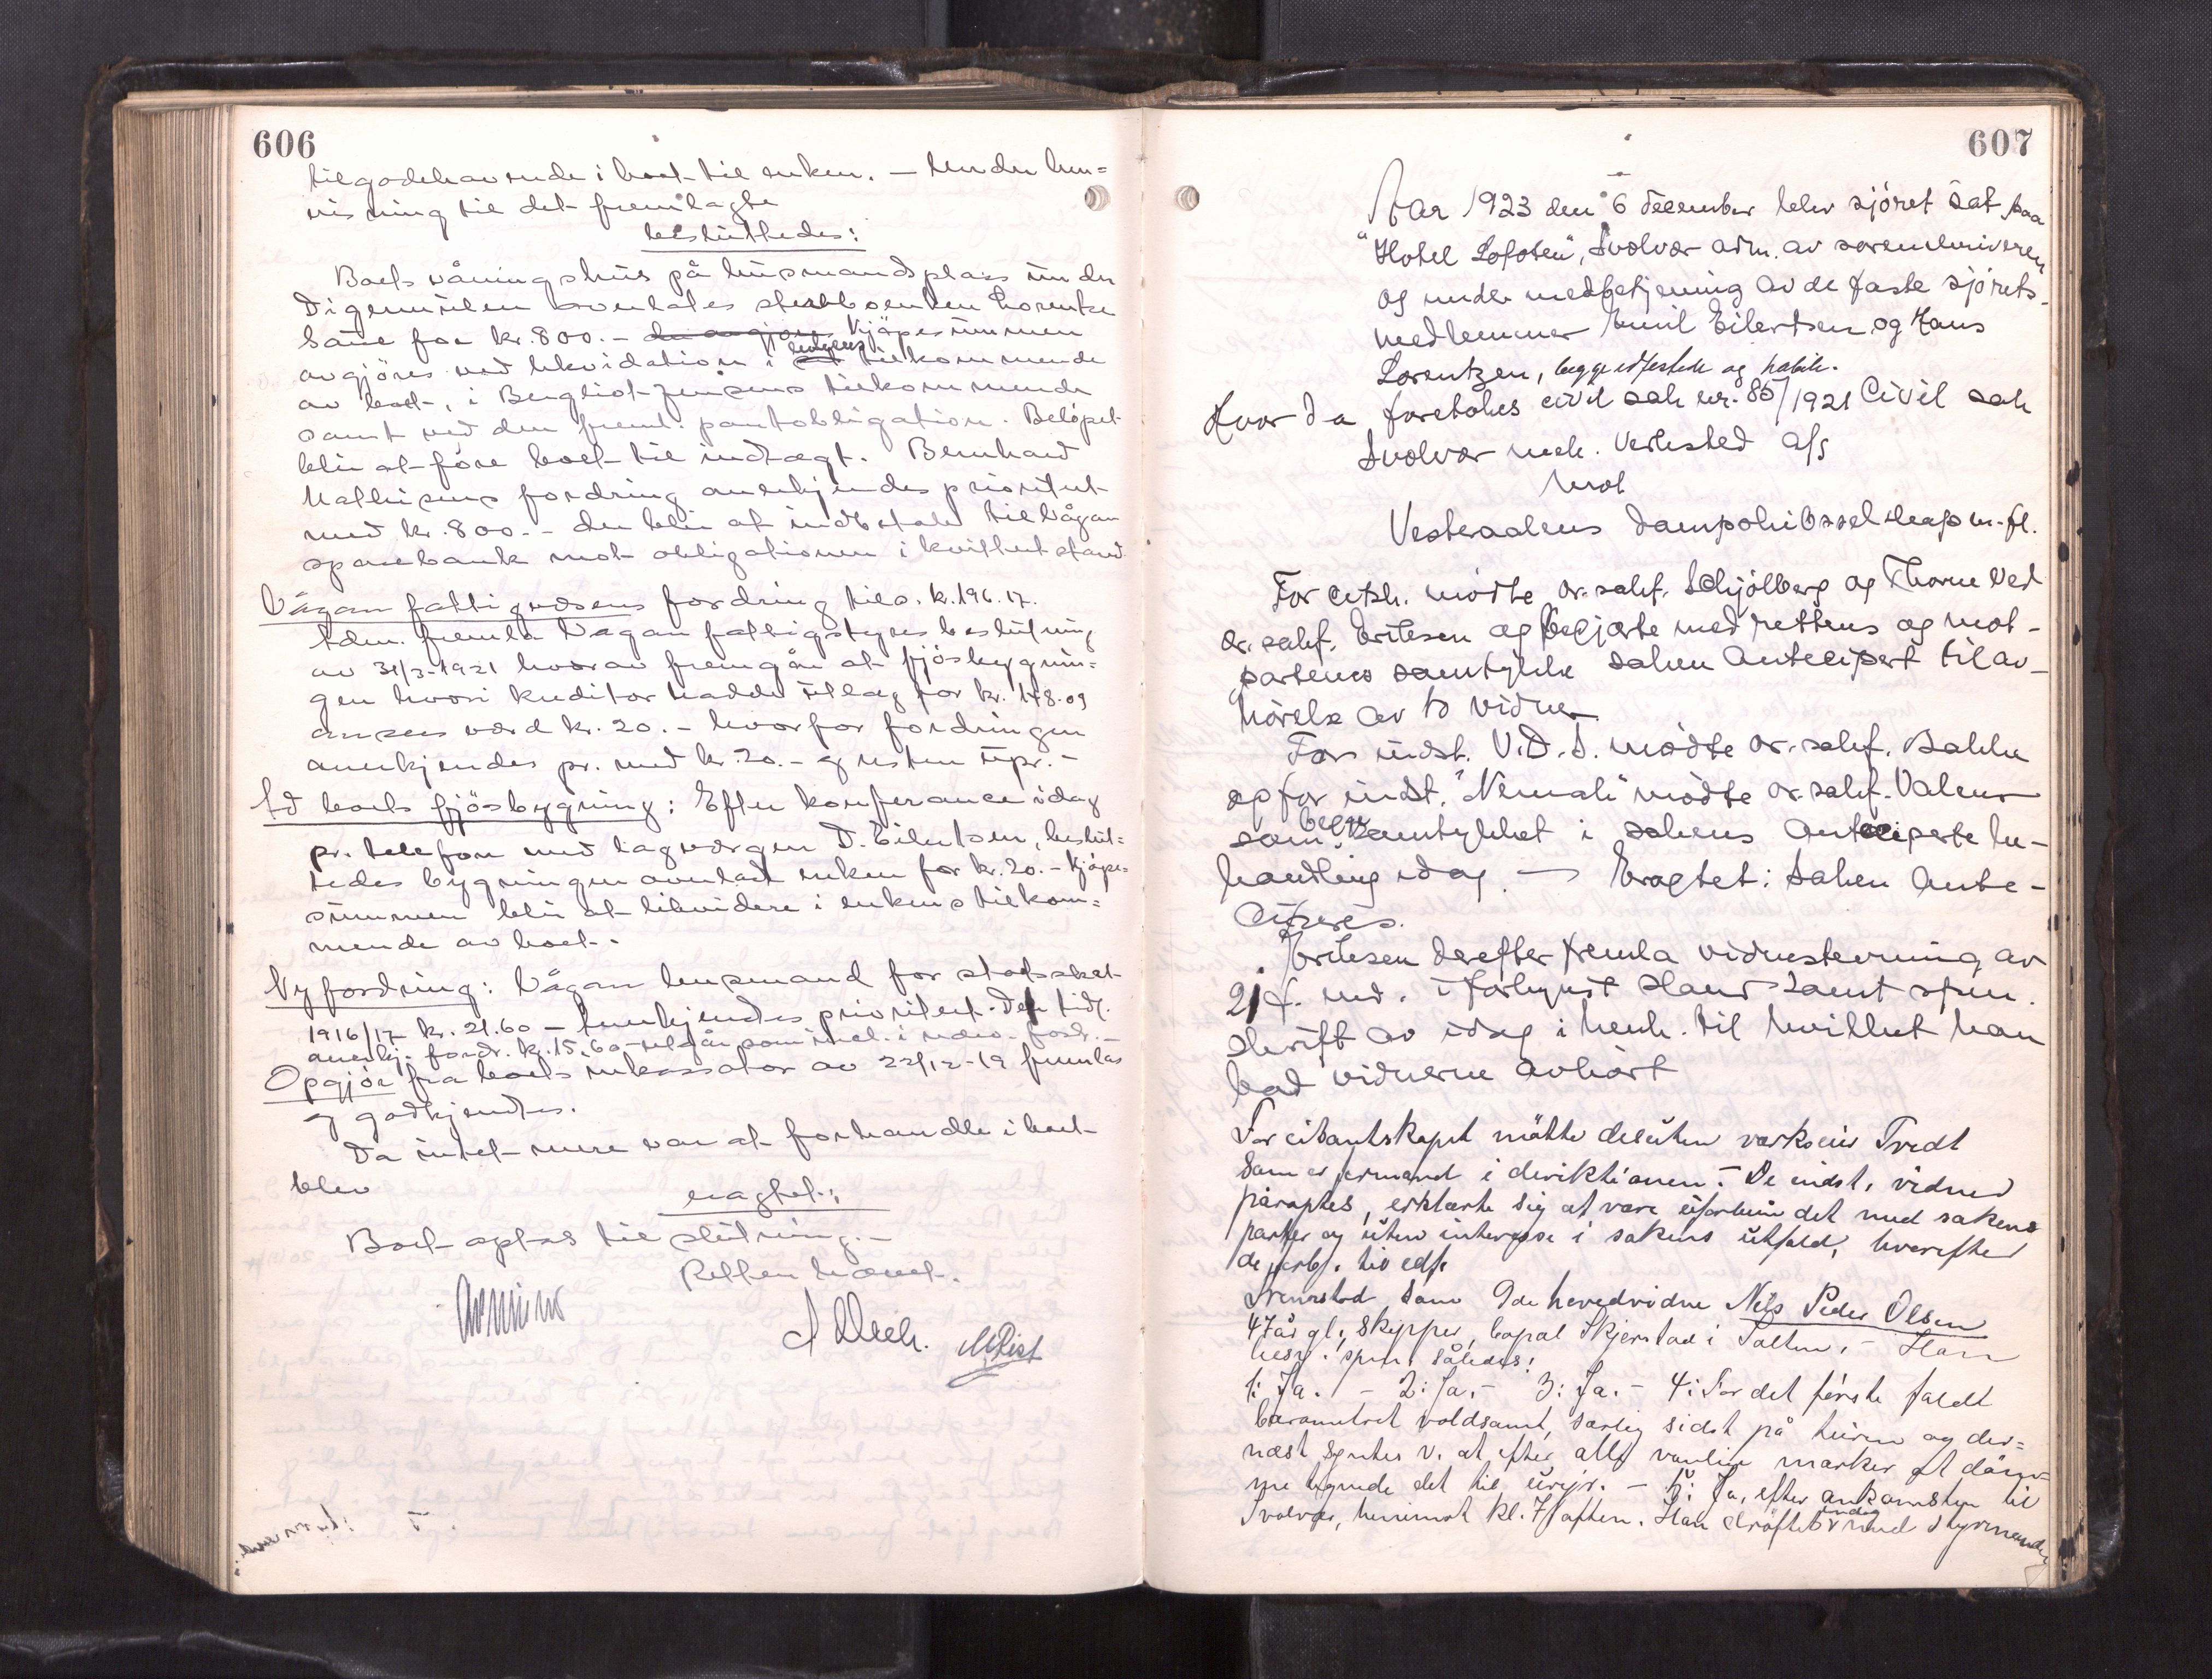 606
tilgodehavende i boet til enken. — Under hen=
visning til det fremlagte
besluttedes:
Boets våningshus på husmandsplass under
Digermulen overlates sterboenken Lorentze
Sane for kr. 800.- Kjøpesummen
avgjöres ved likvidation i enkens tilkommende
av boet, i Bergliot Jensens tilkommende
samt ved den freml. pantobligation. Belöpet
blir at före boet til indtægt. Bernhard
fordring anerkjendes prioritert
med kr. 800.- der blir at indbetale til Vågan
sparebank mot obligationen i kvittert stand.
Vågan fattigvæsens fordring kr. 196.17.
Adm. fremla Vågan fattigstyres beslutning
av 31/3-1921 hvorav fremgår at fjösbygnin=
gen hvori kreditor hadde utlæg for kr. 178.09
ansees værd kr. 20.- hvorfor fordringen
anerkjendes pr. med kr. 20.- og resten upr.-
Ad boets fjösbygning: Efter konferance idag
pr. telefon med lagvergen D. Eilertsen, beslut=
tedes bygningen overlatt enken for kr. 20.- Kjøpe=
summen blir at likvidere i enkens tilkom=
mende av boet.
Ny fordring: Vågan lensmand for statsskat
1916/17 kr. 21.60 — Anerkjendes prioritert. Den tidl.
anerkj. fordr. kr. 15.60 utgår som inkl. i nævn. fordr.-
Opgjör fra boets inkassator av 22/12-19 fremlas
og godkjendtes.
Da intet mere var at forhandle i boet
blev
eragtet:
Boet optas til slutning.-
Retten hævet.
607
Aar 1923 den 6 december blev sjöret sat paa
"Hotel Lofoten", Svolvær adm. av sorenskriveren
og under medbetjening av de faste sjörets-
medlemmer Emil Eilertsen og Hans
Lorentzen, begge edfestede og habile.
Hvor da foretokes civil sak nr. 85/1921 Civil sak
Svolvær mek. Verksted A/S
mot
Vesteraalens Dampskibsselskap m. fl.
For citsk. mödte or. sakf. Schjölberg og Thorne ved
or. sakf. Eriksen og begjærte med rettens og mot-
partenes samtykke saken antecipert til av-
hörelse av to vidner
For indst. V.D.S. mödte or. sakf. Bakke
og for indst. "Nemah" mödte or. sakf. Valeur
som begge samtykket i sakens anteciperte be-
handling idag. — Eragtet: Saken ante-
ciperes.
Eriksen derefter fremla vidnestevning av
21 f. md. i forkynt stand samt spm.
skrift av idag i henh. til hvilket han
bad vidnerne avhört
For citantskapet mötte desuten verkseier Tvedt
som er formand i direktionen.- De indst. vidner
påroptes, erklærte sig at være uforbundet med sakens
parter og uten interesse i sakens utfald, hvorefter
de forbf. til edf.
Fremstod som 9de hovedvidne Nils Peder Olsen
47 år gl., skipper, bopæl Skjerstad i Salten.- Han
besv. spm. således:
1: Ja. - 2: Ja.- 3: Ja.- 4: For det förste faldt
barometret voldsamt, særlig sidst på turen og der=
næst syntes v. at efter alle vanlige merker at dömme
tegnede det til uveir. - 5: Ja, efter ankomsten til
Svolvær, henimot kl. 7 aften. Han dröftet endog med styrmanden